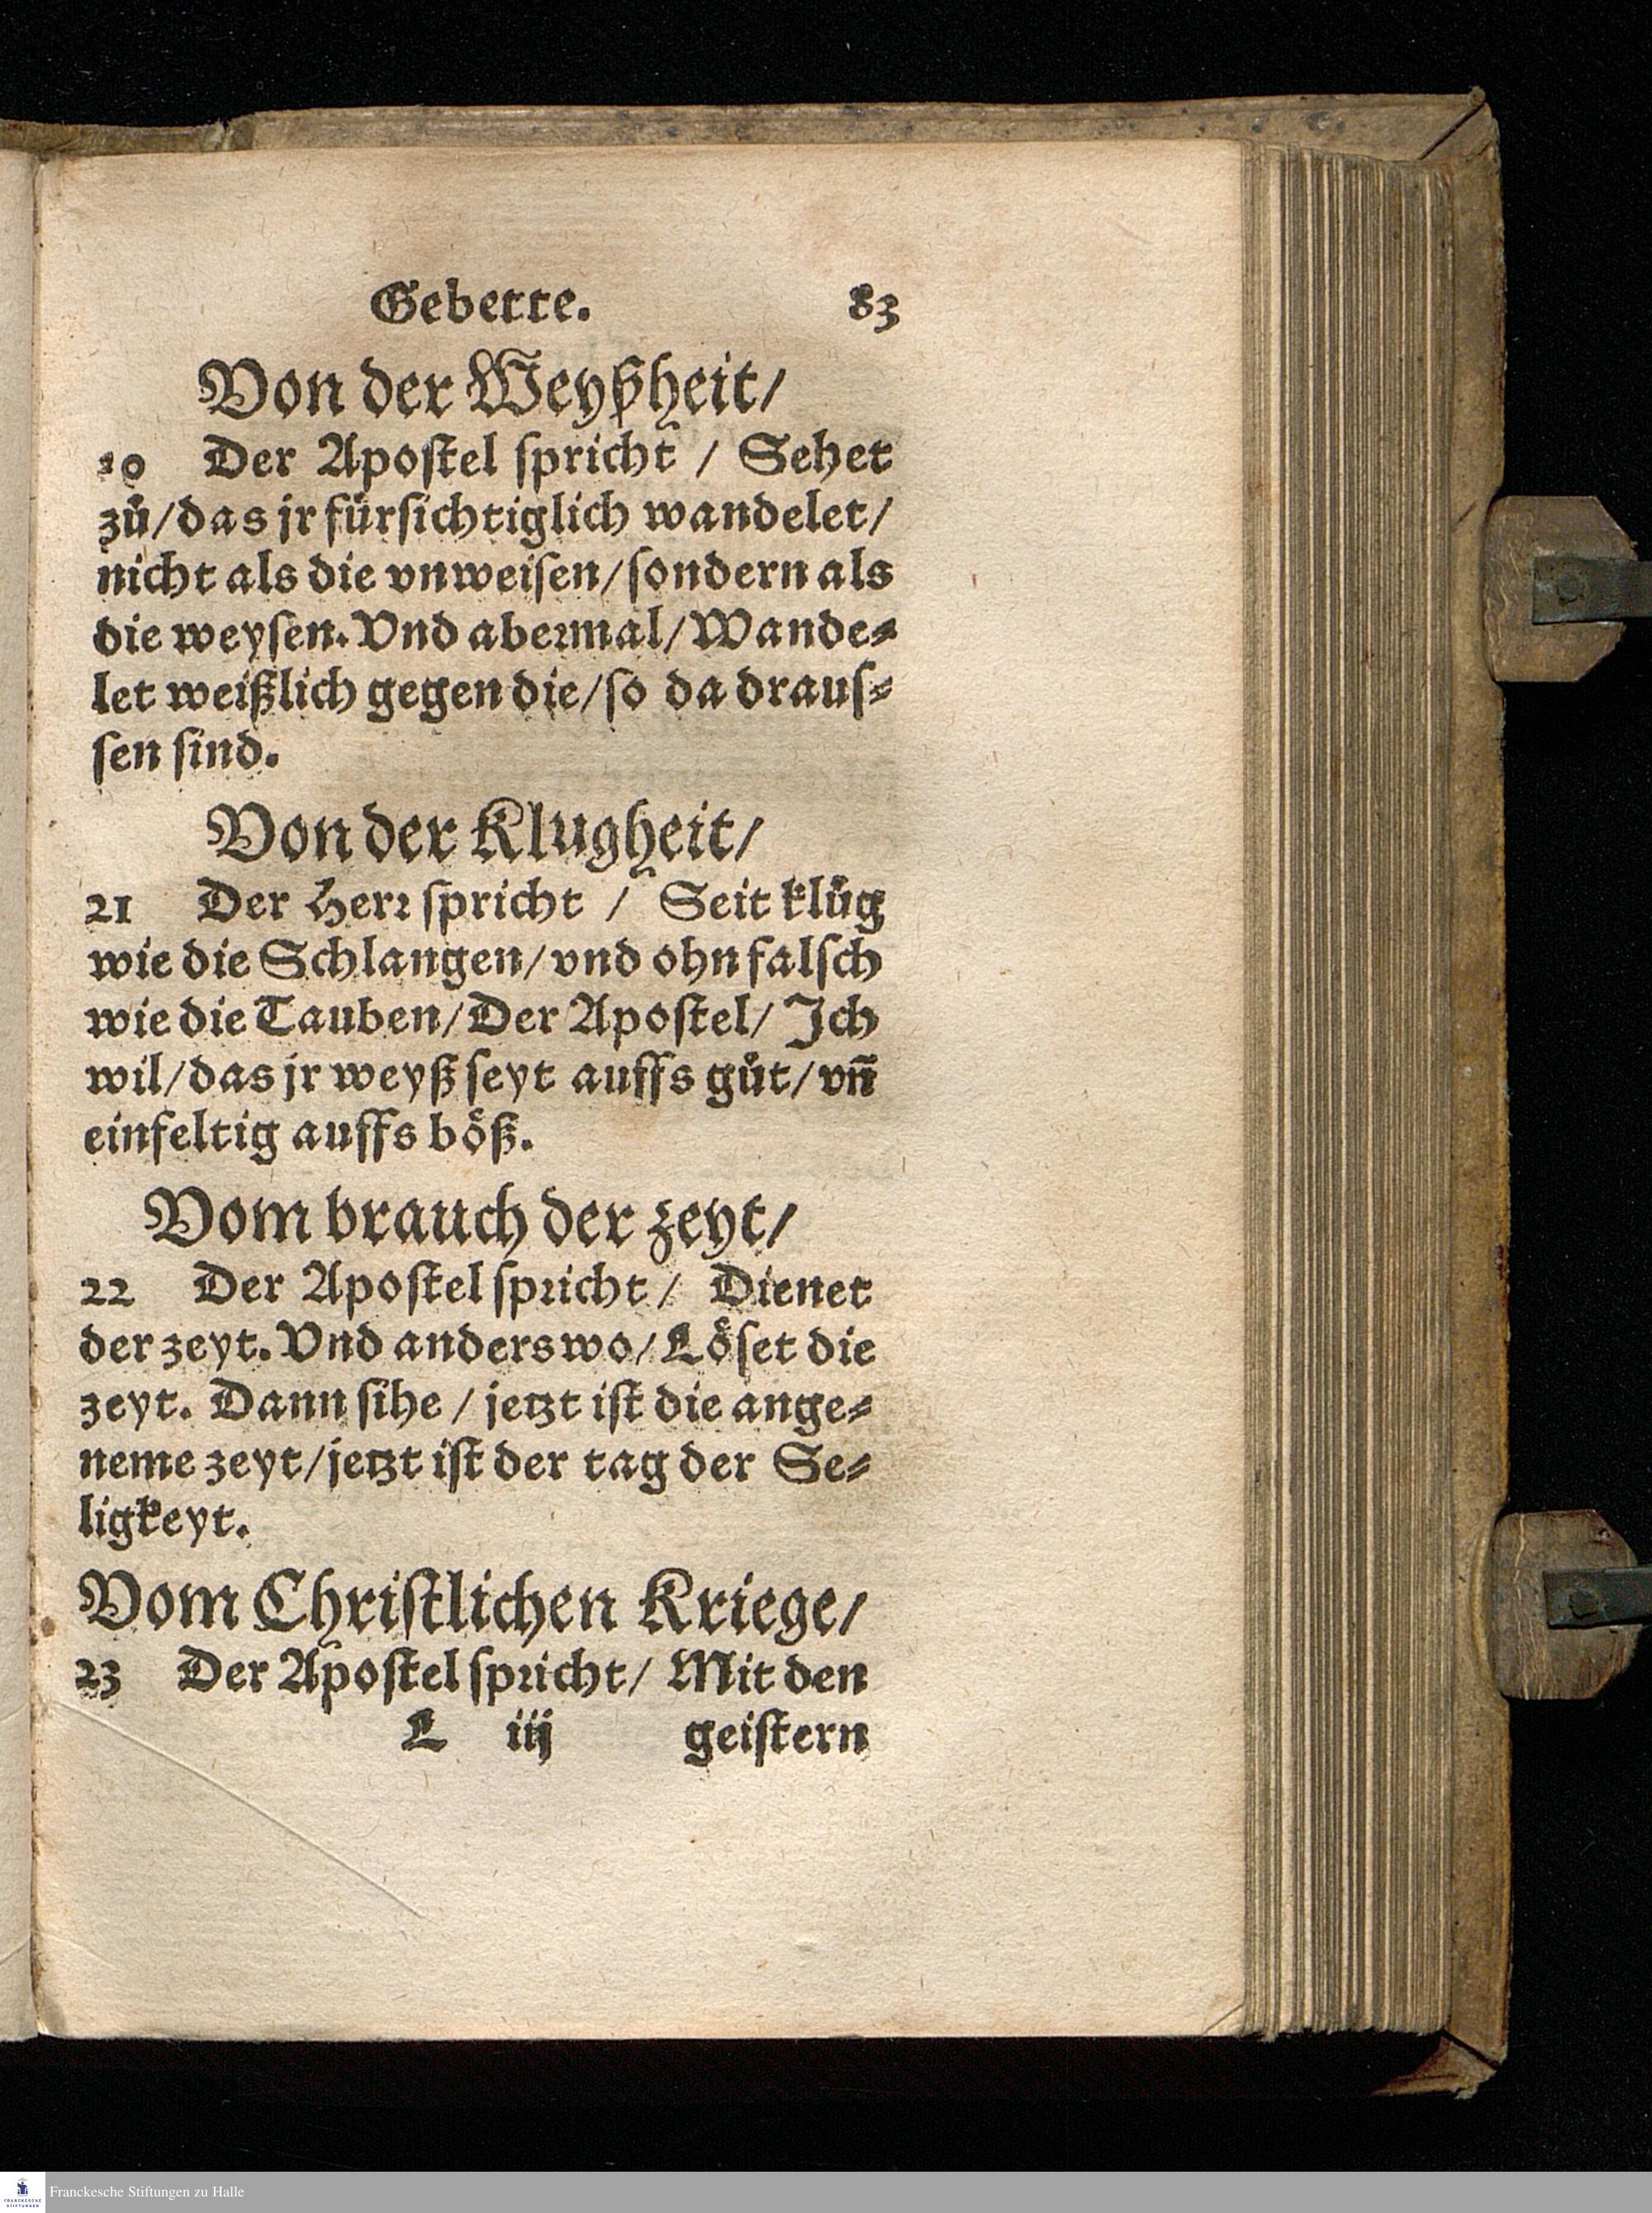 Gebette. 83
Von der Weyßheit/
20 Der Apoſtel ſpricht / Sehet
zů/das jr fürſichtiglich wandelet/
nicht als die vnweiſen/ſondern als
die weyſen. Vnd abeꝛmal/Wande⸗
let weißlich gegen die/ſo da drauſ⸗
ſen ſind.
Von der Klugheit/
21 Der Herꝛ ſpricht / Seit klůg
wie die Schlangen/vnd ohn falſch
wie die Tauben/Der Apoſtel/ Ich
wil/das jr weyß ſeyt auffs gůt/vñ
einfeltig auffs boͤß.
Vom brauch der zeyt/
22 Der Apoſtel ſpꝛicht/ Dienet
der zeyt. Vnd anderswo/Loͤſet die
zeyt. Dann ſihe / jetzt iſt die ange⸗
neme zeyt/jetzt iſt der tag der Se⸗
ligkeyt.
Vom Chriſtlichen Kriege/
23 Der Apoſtel ſpꝛicht/ Mit den
L iij geiſtern
FRANCKESCHE STIFTUNGEN
Franckesche Stiftungen zu Halle